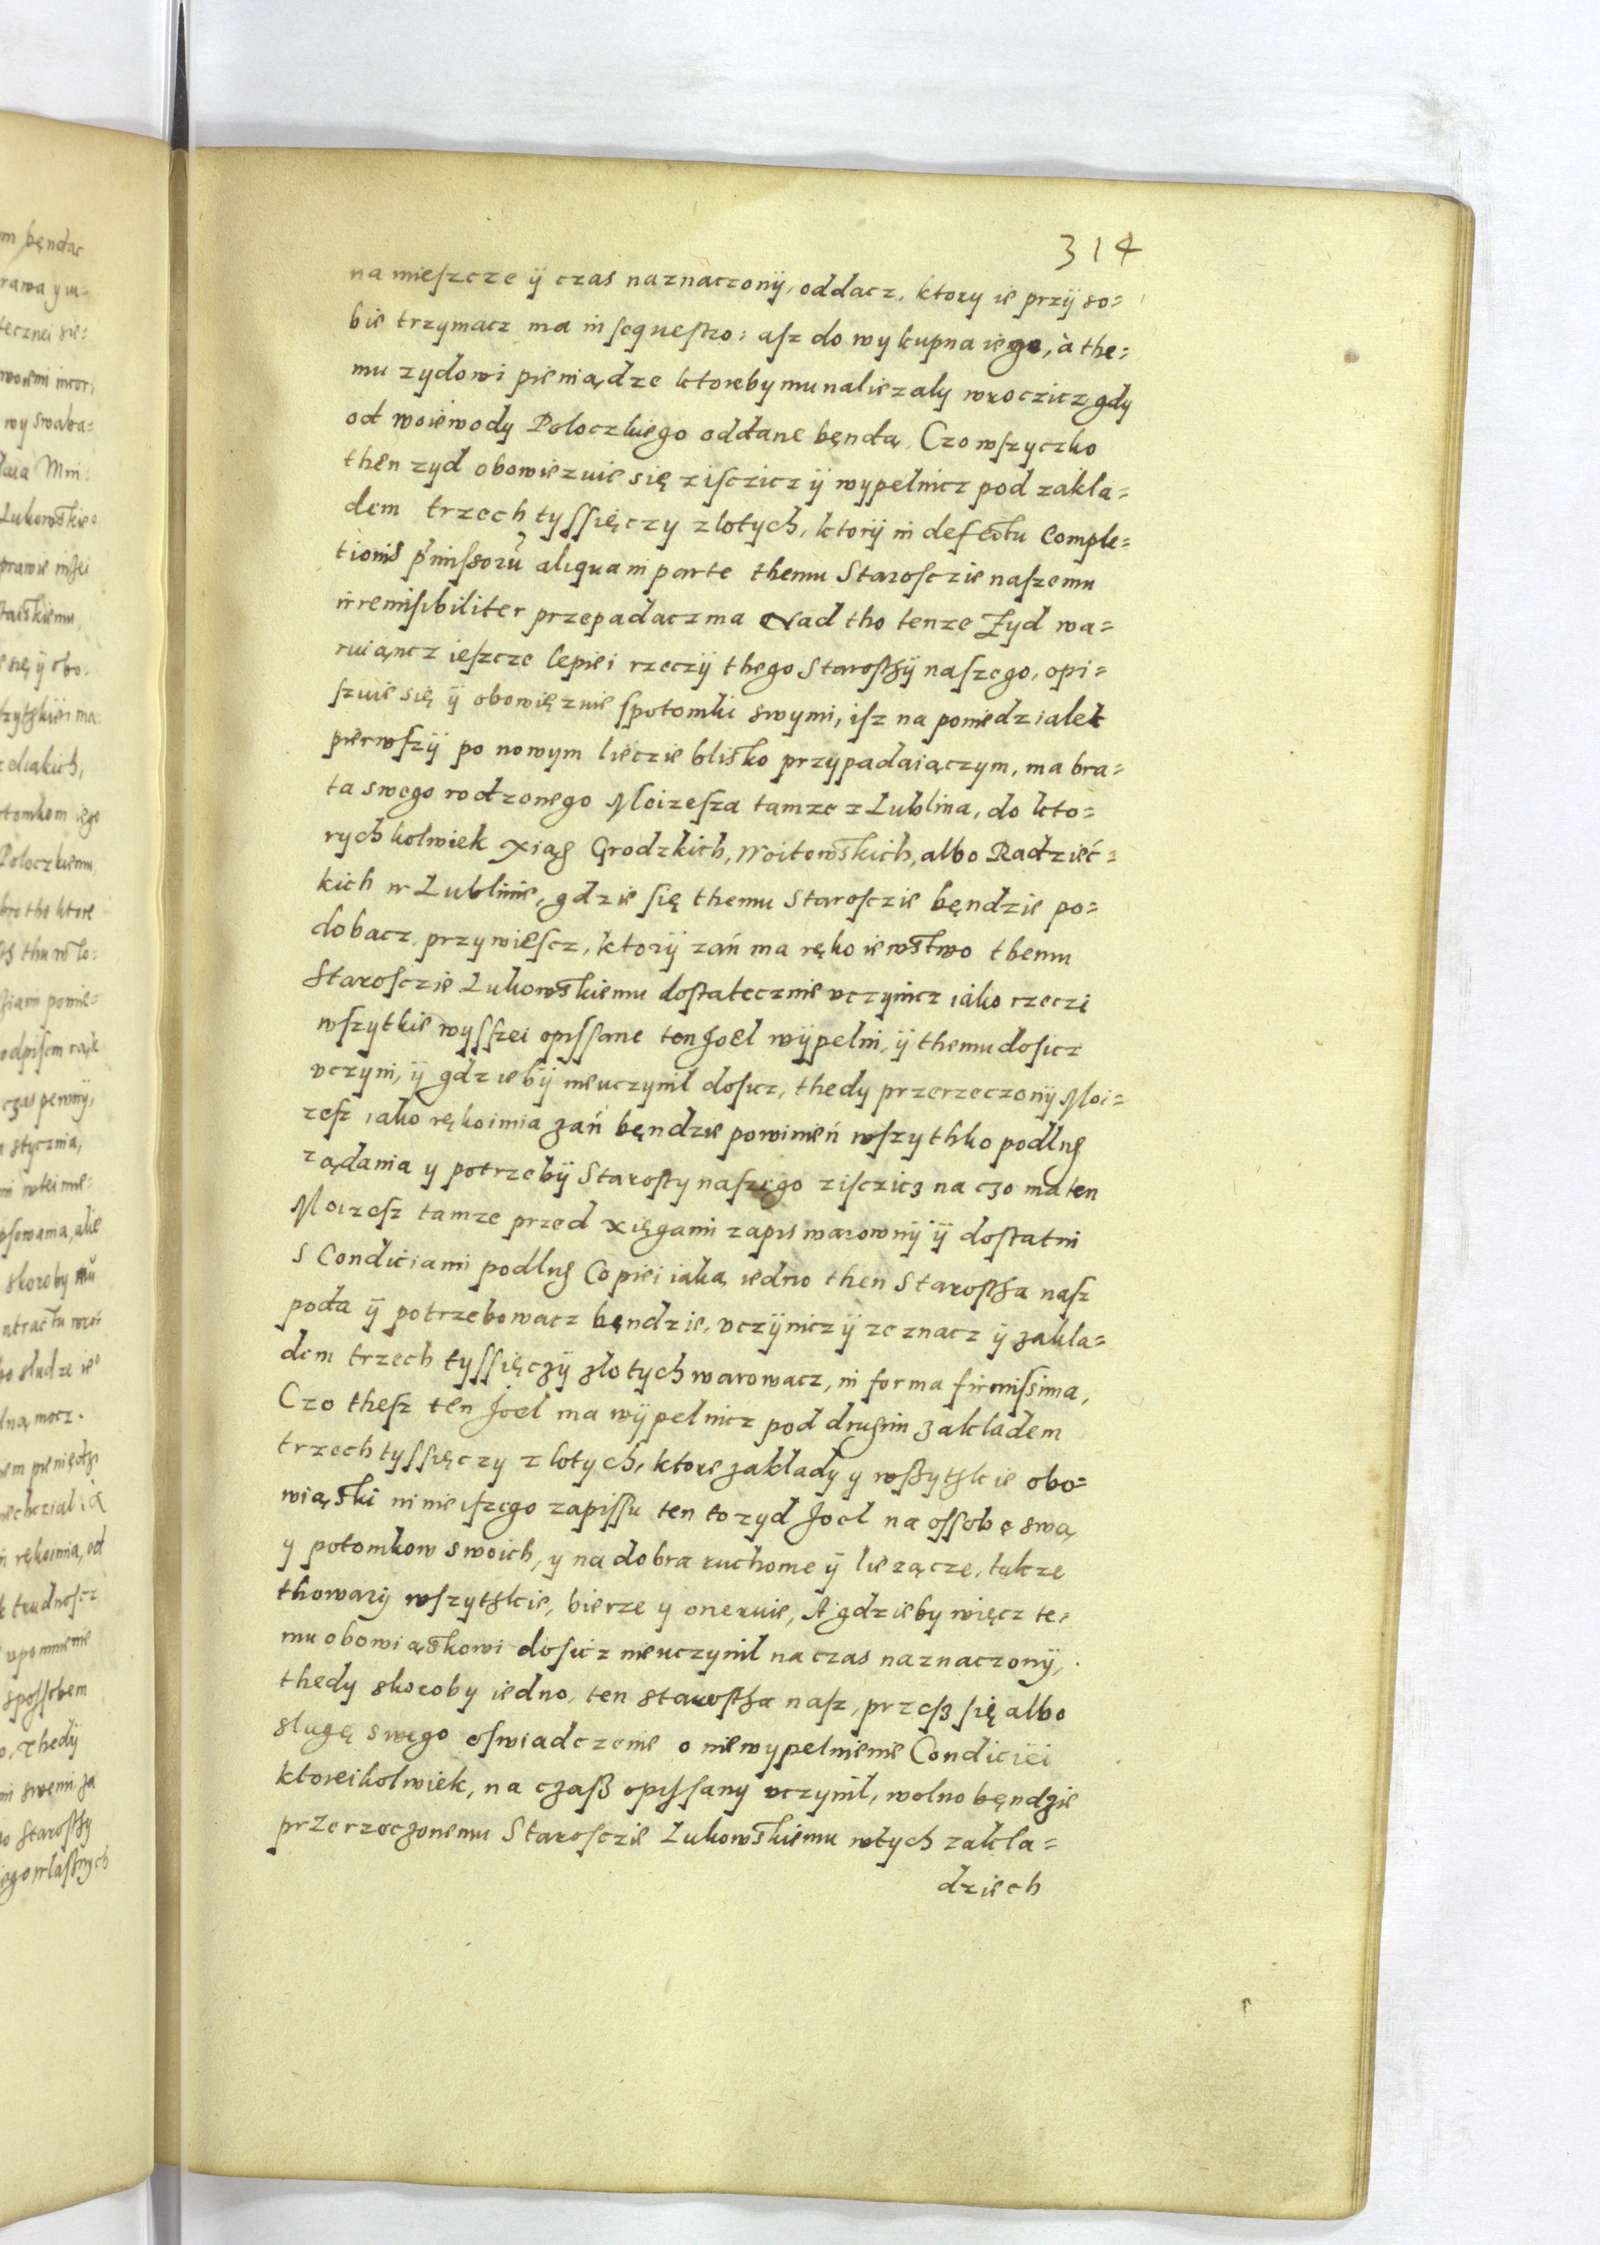 314
na mieſzcze ÿ czas naznaczonÿ, oddacz, ktory ie przÿ so=
bie trzymacz ma in sequeſtro: aſz do wykupna iego, à the=
mu zydowi pieniądze ktoreby mu naliezaly wroczicz gdy
od woiewody Poloczkiego oddane będą. Czo wſzyczko
then zyd obowiezuie się ziſczicz ÿ wypelnicz pod zakla=
dem trzech tyſſięczy zlotych, ktorÿ in defectu Comple=
tionis p̃miſſorũ aliqua in parte themu Staroſczie naſzemu
irremiſibiliter przepadacz ma Nad tho tenze Zyd wa=
ruiąncz ieſzcze lepiei rzeczÿ thego Staroſthÿ naſzego, opi=
ſzuie się ÿ obowięzuie ſpotomki swymi, iſz na poniedzialek
pierwſzÿ po nowym liecie blisko przypadaiączym, ma bra=
ta swego rodzonego Moizeſza tamze z Lublina, do kto=
rychkolwiek xiąg Grodzkich, Woitowskich, albo Radziec=
kich w Lublinie, gdzie ſię themu Staroſczie bęndzie po=
dobacz, przywieſcz, ktorÿ zań ma rękoiewstwo themu
Staroſczie Lukowskiemu doſtatecznie vczynicz iako rzeczi
wſzytkie wyſſzei opiſſane ten Joel wÿpelni, ÿ themu doſicz
vczyni, ÿ gdziebÿ nieuczynil doſicz, thedy przerzeczonÿ Moi=
zeſz iako rękoimia zań będzie powinień wſzythko podlug
ządania y potrzebÿ Staroſty naſzego ziſczicz na czo ma ten
Moizeſz tamze przed xięgami zapis warownÿ ÿ doſtatni
s Condiciami podlug Copiei iaką iedno then Staroſtha naſz
poda ÿ potrzebowacz bęndzie, vczÿnicz ÿ zeznacz ÿ zakla=
dem trzech tyſſięczÿ zlotych warowacz, in forma firmiſsima,
Czo theſz ten Joel ma wÿpelnicz pod drugim zakladem
trzech tyſſięczy zlotych, ktore zaklady y wſzytzkie obo=
wiąski ninieiſzego zapiſſu ten to zyd Joel na oſſobę swą
y potomkow swoich, y na dobra ruchome ÿ liezącze, takze
thowarÿ wſzytzkie, bierze y oneruie, A gdzieby więcz te=
mu obowiąskowi doſicz nieuczynil na czas naznaczonÿ,
thedy skoroby iedno, ten staroſtha naſz, przeſz ſię albo
slugę swego oſwiadczenie o niewypelnienie Condiciei
ktoreikolwiek, na czaſz opiſſany vczynil, wolno bęndzie
przerzeczonemu Staroſczie Lukowskiemu wtych zakla=
dziech